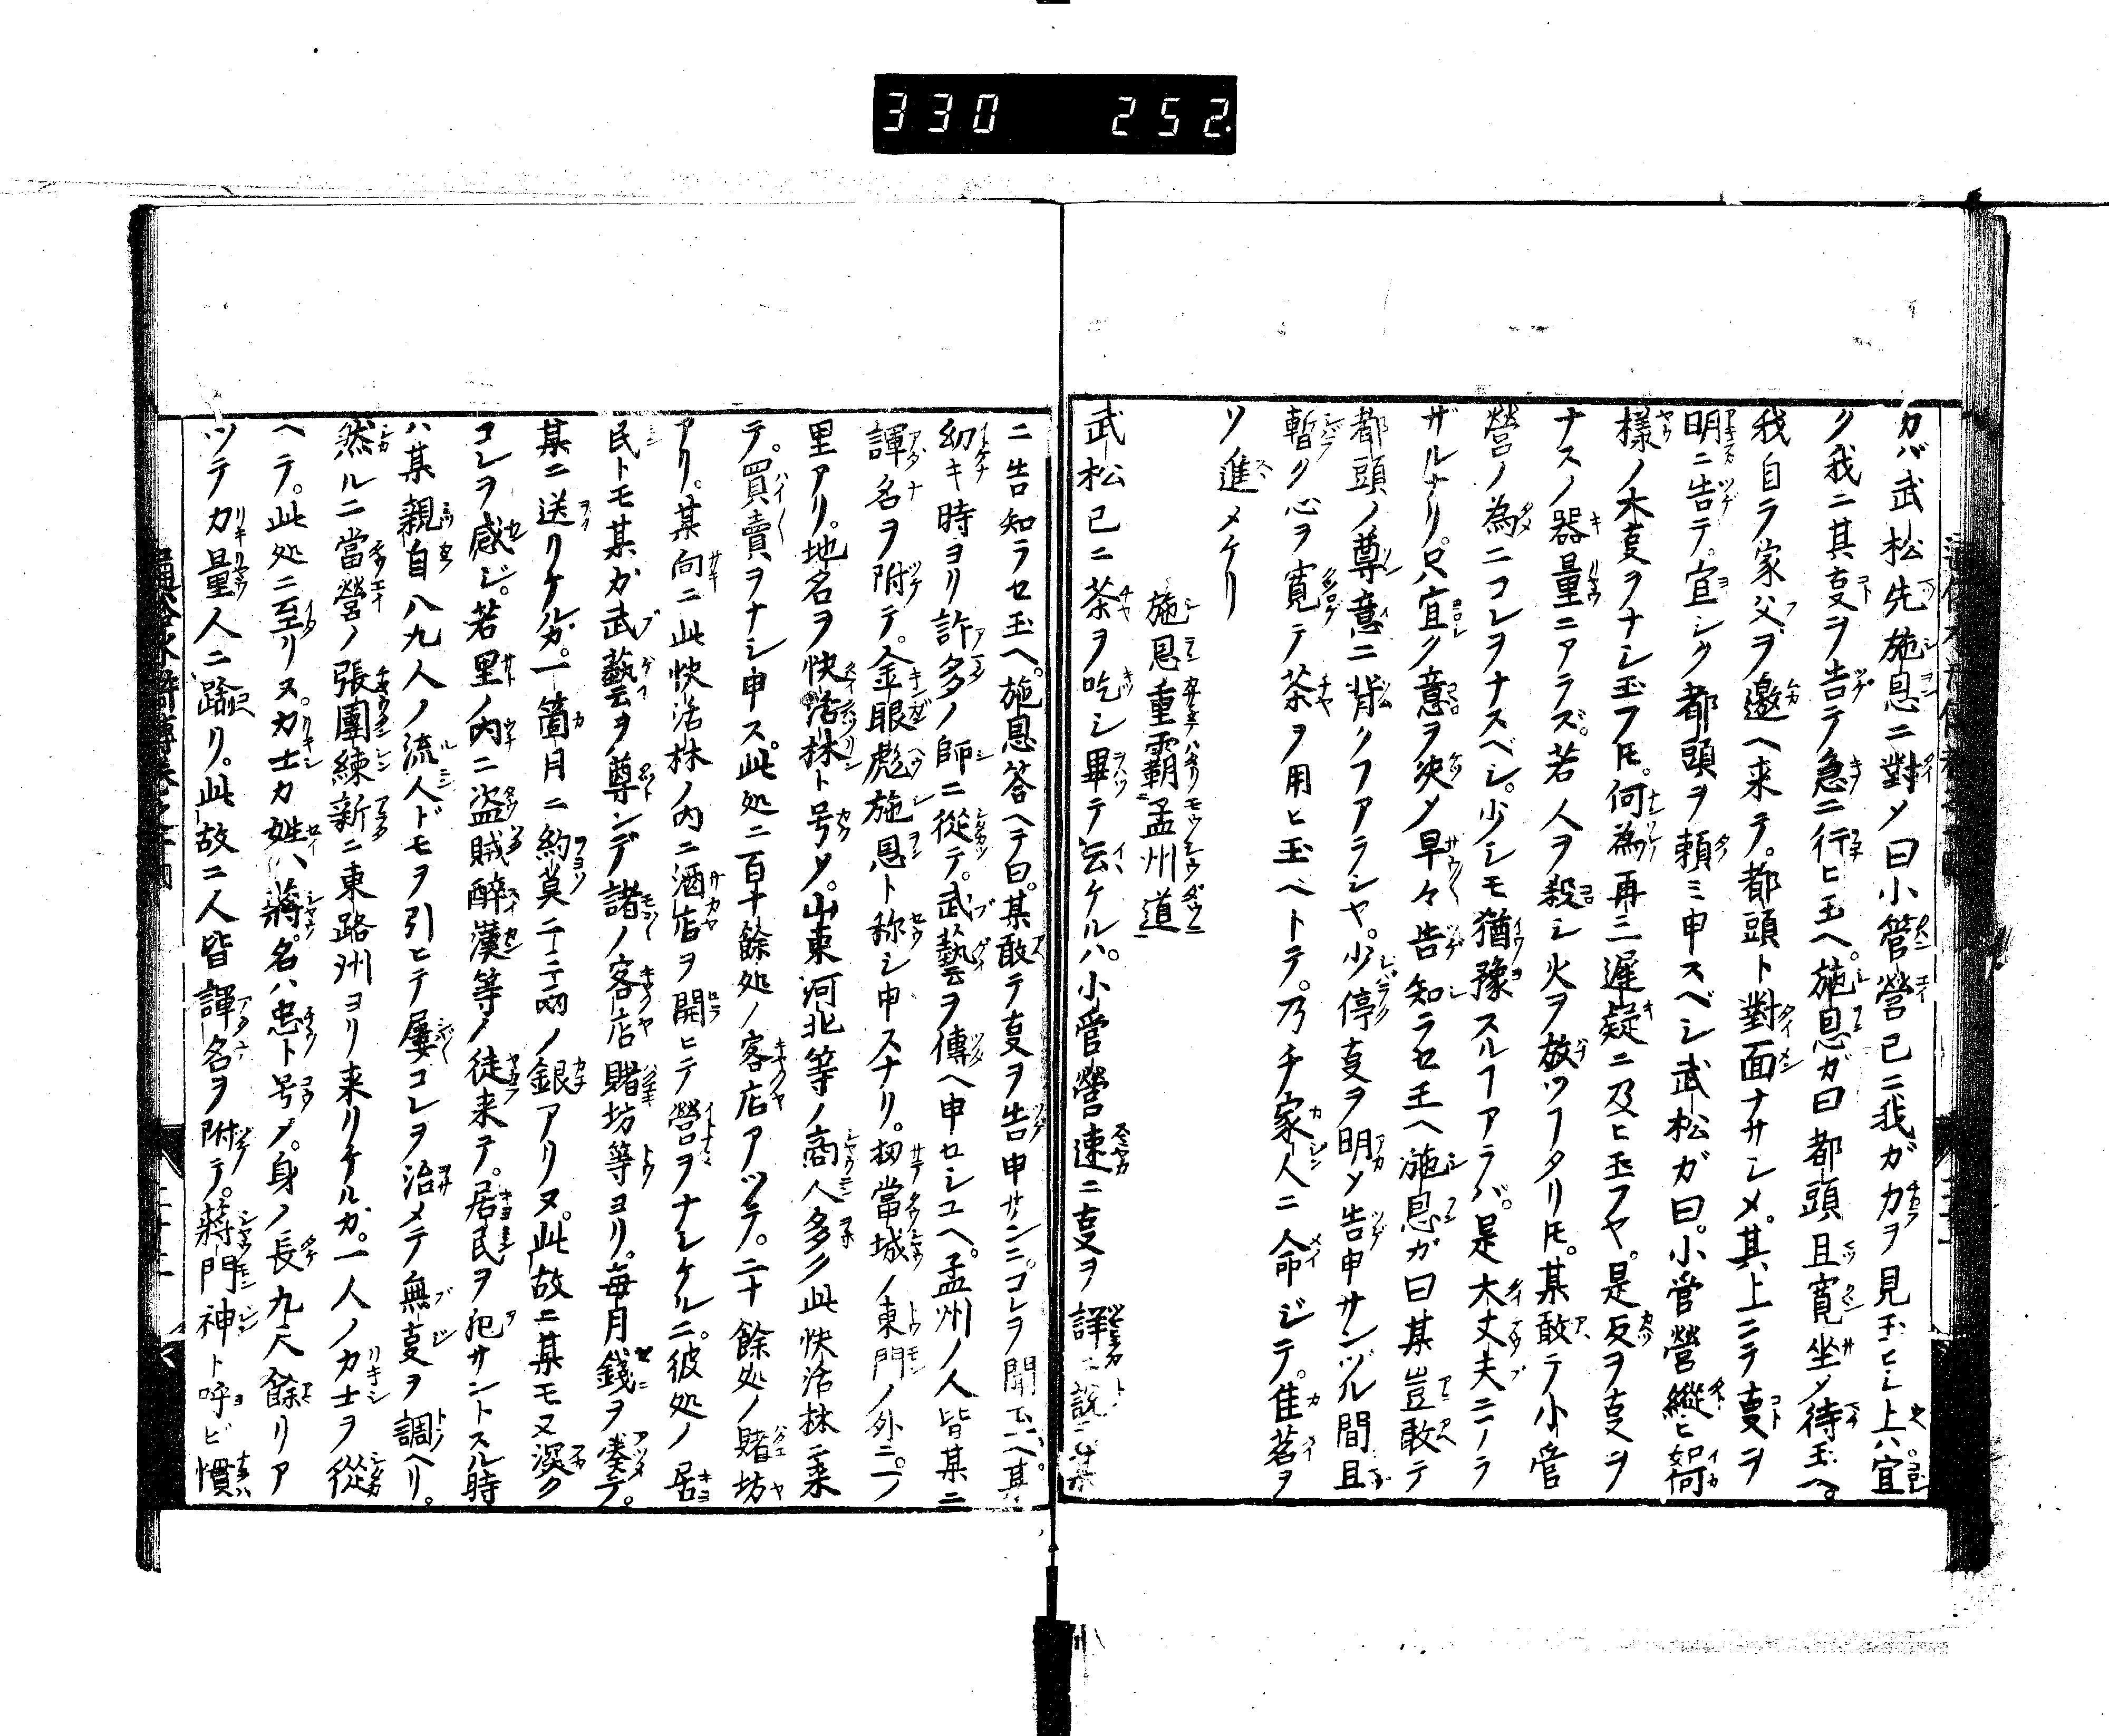 330 252.
カバ武松先施恩ニ對メ曰小管營已ニ我ガ力ヲ見玉ヒシ上ハ宜
ク我ニ其叓ヲ告テ急ニ行ヒ玉ヘ。施恩ガ曰都頭且寛坐メ待玉ヘ。
我自ラ家父ヲ邀ヘ来テ。都頭ト對面ナサシメ。其上ニテ叓ヲ
明ニ告テ。宜シク都頭ヲ頼ミ申スベシ武松ガ曰。小管營縱ヒ如何
樣ノ大叓ヲナシ玉フ𪜈。何為再三遲疑ニ及ヒ玉フヤ。是反ヲ叓ヲ
ナスノ器量ニアラズ。若人ヲ殺シ火ヲ放ツヿタリ𪜈。某敢テ小管
營ノ為ニコレヲナスベシ。少シモ猶豫スルヿアラバ。是大丈夫ニノラ
ザルナリ。只宜ク意ヲ决メ早々告知ラセ玉ヘ施恩ガ曰某豈敢テ
都頭ノ尊意ニ背クヿアランヤ。少停叓ヲ明メ告申サンヅル間且
暫ク心ヲ寛テ茶ヲ用ヒ玉ヘトテ。乃チ家人ニ命ジテ。佳茗ヲ
ソ進メケリ
施恩重霸孟州道
武松已ニ茶ヲ吃シ畢テ云ケルハ。小管營速ニ叓ヲ詳ニ説テ某
ニ告知ラセ玉ヘ。施恩答ヘテ曰。某敢テ叓ヲ告申サンニ。コレヲ聞玉ヘ。某
幼キ時ヨリ許多ノ師ニ從テ。武藝ヲ傳ヘ申セシユヘ。孟州ノ人皆某ニ
諢名ヲ附テ。金眼彪施恩ト称シ申スナリ。扨當城ノ東門ノ外ニ。一ツ
里アリ。地名ヲ快活林ト号メ。山東河北等ノ商人多ク此快活林ニ来
テ。買賣ヲナシ申ス。此処ニ百十餘処ノ客店アツテ。二十餘処ノ賭坊
アリ。某向ニ此快活林ノ内ニ酒店ヲ開ヒテ營ヲナシケルニ。彼処ノ居
民トモ某ガ武藝ヲ尊ンデ諸ノ客店賭坊等ヨリ。毎月錢ヲ湊テ。
某ニ送リケルガ。一箇月ニ約莫二三百兩ノ銀アリヌ。此故ニ某モ又深ク
コレヲ感ジ。若里ノ内ニ盗賊醉漢等ノ徒来テ。居民ヲ犯サントスル時
ハ某親自八九人ノ流人ドモヲ引ヒテ屢コレヲ治メテ無叓ヲ調ヘリ。
然ルニ當營ノ張團練新ニ東路州ヨリ来リケルガ。一人ノ力士ヲ從
ヘテ。此処ニ至リヌ。力士カ姓ハ蒋。名ハ忠ト号メ。身ノ長九尺餘リア
ツテ力量人ニ踰リ。此故ニ人皆諢名ヲ附テ。蒋門神ト呼ビ慣